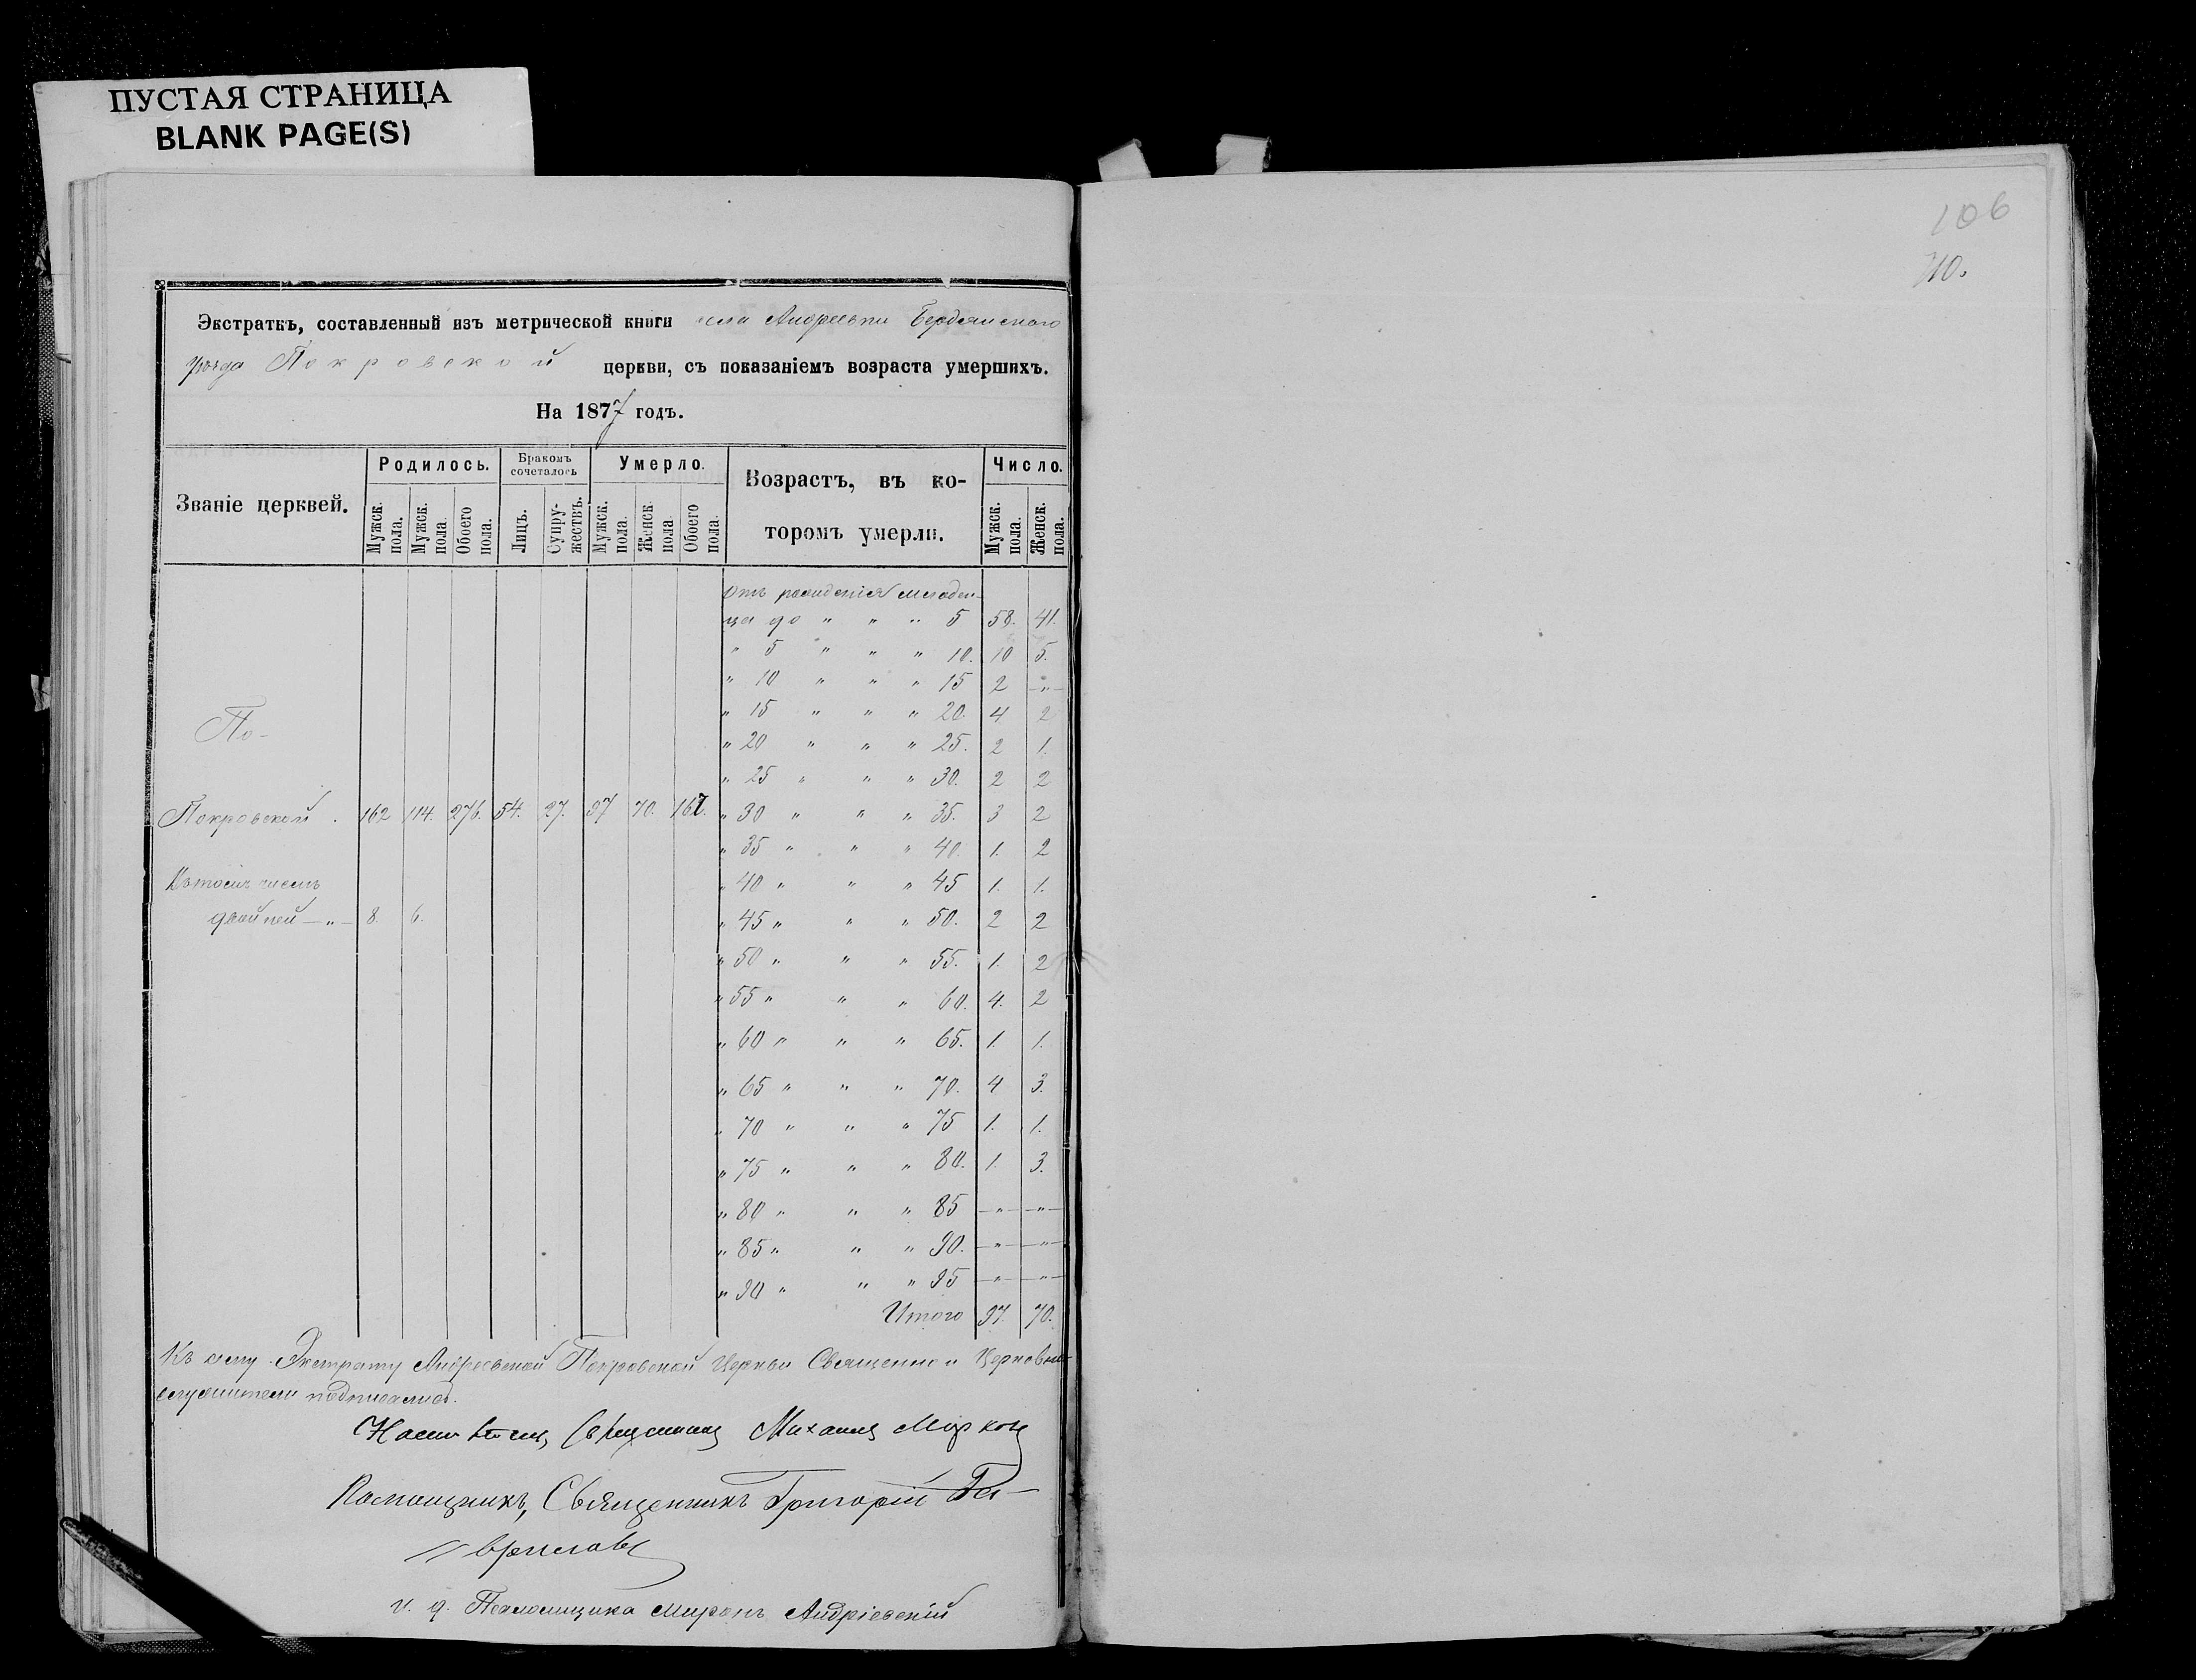 ПУСТАЯ СТРАНИЦА
BLANK PAGE(S)
106
710.
Экстрактъ, составленный изъ метрической книги села Андреевки Бердянскаго
уѣзда Покровской церкви, съ показаніемъ возраста умершихъ.
На 1877 годъ.
Званіе церквей.
Родилось.
Бракомъ сочеталось
Умерло.
Возрастъ, въ которомъ умерли.
Число.
Мужск. пола. Мужск. пола. Обоего пола. Лицъ. Супружествъ. Мужск. пола. Женск. пола. Обоего пола. Мужск. пола. Женск. пола.
Отъ рожденія младен-
ца до " " " 5 58. 41.
" 5 " " " 10. 10 5.
" 10 " " " 15 2 —"—
" 15 " " " 20. 4 2
По-
" 20 " " " 25. 2 1.
" 25 " " " 30. 2 2
Покровской . 162 114. 276. 54. 27. 97 70. 167. " 30 " " " 35. 3 2
" 35 " " " 40. 1. 2
Въ томъ числѣ
" 40 " " " 45 1. 1.
двойней —"— 8. 6.
" 45 " " " 50. 2 2
" 50 " " " 55. 1. 2
" 55 " " " 60. 4. 2
" 60 " " " 65. 1. 1.
" 65 " " " 70. 4 3.
" 70 " " " 75 1. 1.
" 75 " " " 80. 1. 3.
" 80 " " " 85 —"— —"—
" 85 " " " 90. —"— —"—
" 90 " " " 95 —"— —"—
Итого 97. 70.
Къ сему Экстракту Андреевской Покровской Церкви Священно и Церковно-
служители подписались.
Настоятель, Священникъ Михаилъ Марковъ
Помощникъ, Священникъ Григорій Га-
вриловъ
и. д. Псаломщика Миронъ Андріевскій